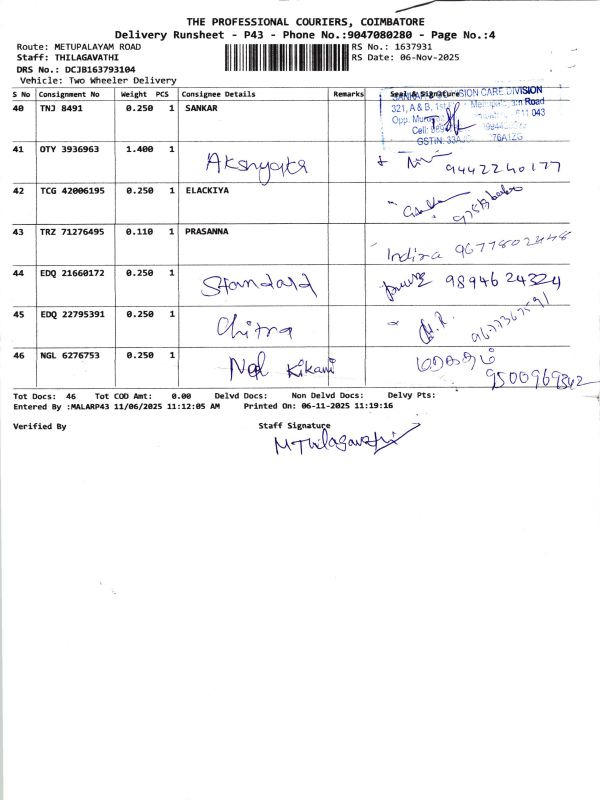 THE PROFESSIONAL COURIERS, COIMBATORE
Delivery Runsheet - P43 - Phone No.:9047080280 - Page No.:4
Route: METUPALAYAM ROAD RS No.: 1637931
Staff: THILAGAVATHI RS Date: 06-Nov-2025
DRS No.: DCJB163793104
Vehicle: Two Wheeler Delivery
S No Consignment No Weight PCS Consignee Details Remarks Seal & Signature
SION CARE DIVISION
40 TNJ 8491 0.250 1 SANKAR
321, A & B, Road
Opp. 043
Cell:
GSTIN:
41 OTY 3936963 1.400 1 Akshyata 9442240177
42 TCG 42006195 0.250 1 ELACKIYA
43 TRZ 71276495 0.110 1 PRASANNA
Indira 9677802448
44 EDQ 21660172 0.250 1 Standald 9894624324
45 EDQ 22795391 0.250 1 Chitra 9677367591
46 NGL 6276753 0.250 1 Ngl Kikani
9500969362
Tot Docs: 46 Tot COD Amt: 0.00 Delvd Docs: Non Delvd Docs: Delvy Pts:
Entered By :MALARP43 11/06/2025 11:12:05 AM Printed On: 06-11-2025 11:19:16
Verified By Staff Signature
M Thilagavathi